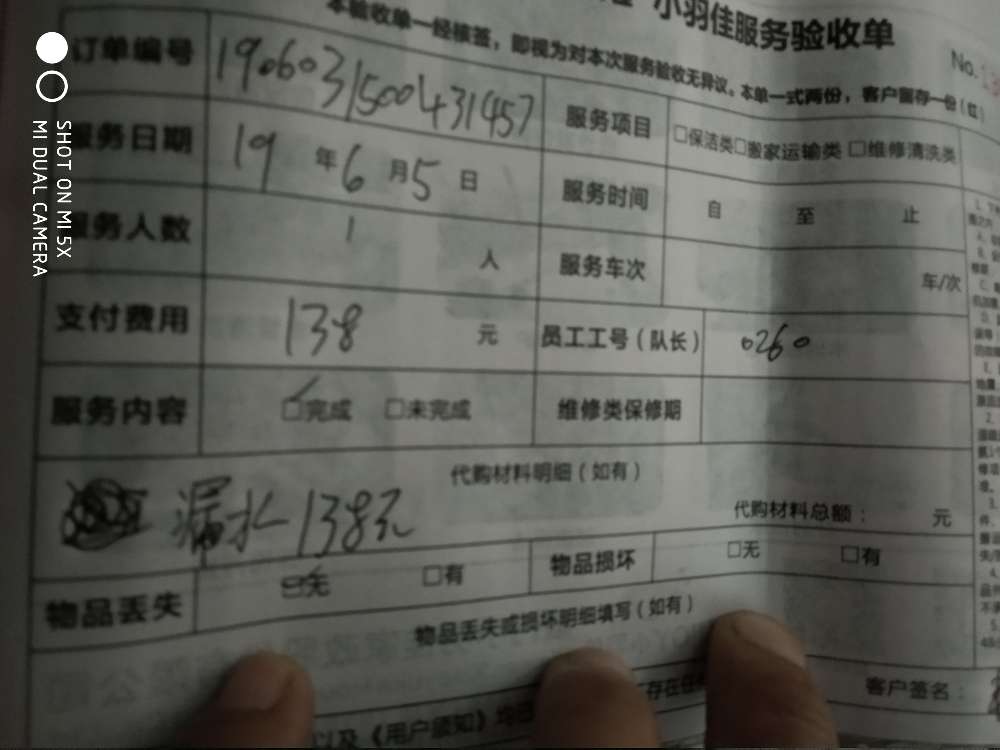 小羽佳服务验收单
本验收单一经核签，即视为对本次服务验收无异议。本单一式两份，客户留存一份（红）
No.
订单编号 19060315004431457 服务项目 □保洁类□搬家运输类 □维修清洗类
服务日期 19 年 6 月 5 日 服务时间 自 至 止
服务人数 1 人 服务车次 车/次
支付费用 138 元 员工工号（队长） 0260
服务内容 □完成 □未完成 维修类保修期
代购材料明细（如有）
漏水 138元
代购材料总额： 元
物品丢失 □无 □有 物品损坏 □无 □有
物品丢失或损坏明细填写（如有）
客户签名：
以及《用户须知》
SHOT ON MI 5X
MI DUAL CAMERA